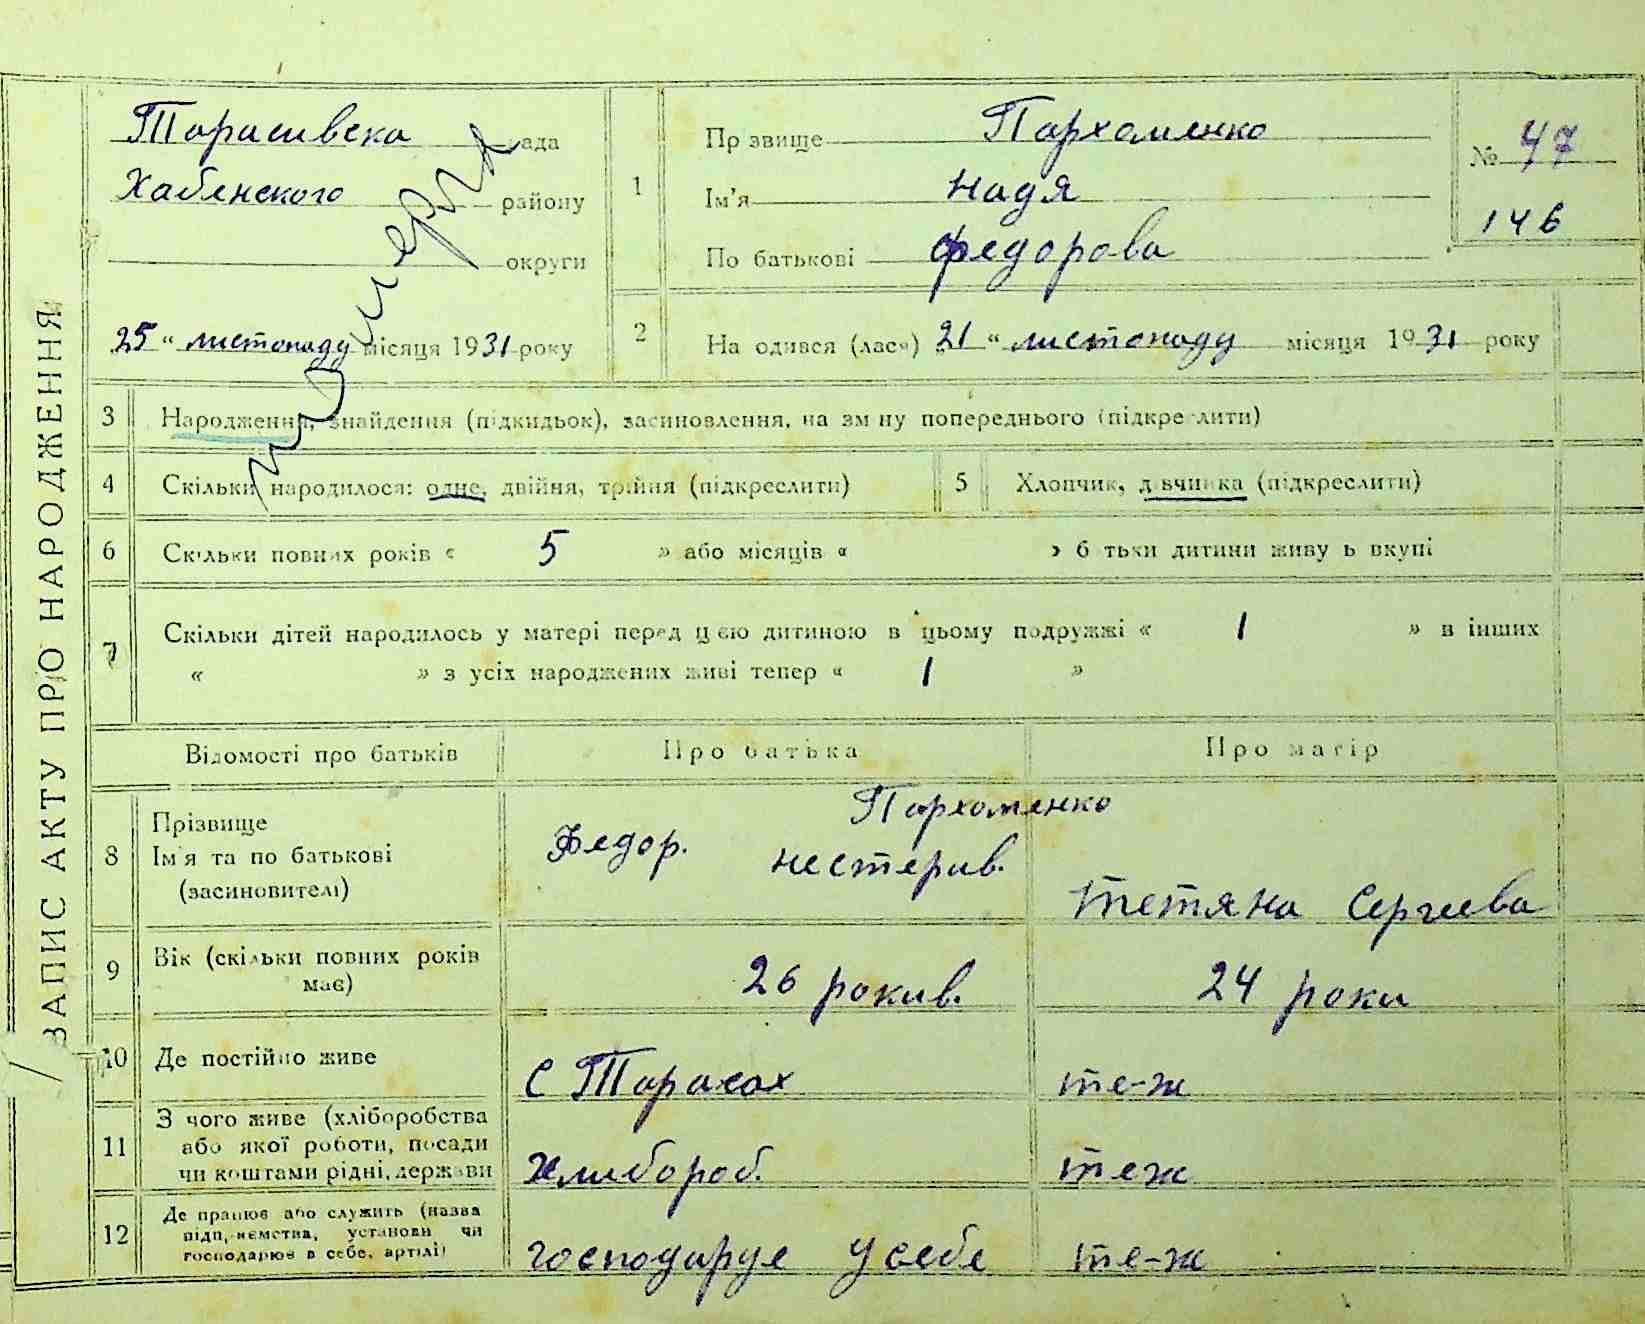 ЗАПИС АКТУ ПРО НАРОДЖЕННЯ
Тарасивска рада
Хабенского району
округи
25 „ листопаду місяця 1931 року
померла
1
Прізвище Пархоменко
Ім'я Надя
По батькові Федорова
№ 47
146
2 На одився (лась) 21 „ листопаду місяця 1931 року
3 Народження, знайдення (підкидьок), засиновлення, на зм ну попереднього (підкре лити)
4 Скільки народилося: одне, двійня, трійня (підкреслити)
5 Хлопчик, дівчинка (підкреслити)
6 Скільки повних років « 5 » або місяців « » б тьки дитини живу ь вкупі
7 Скільки дітей народилось у матері перед цією дитиною в цьому подружжі « 1 » в інших
« » з усіх народжених живі тепер « 1 »
Відомості про батьків Про батька Про матір
8 Прізвище
Ім'я та по батькові
(засиновителі)
Пархоменко
Федор. нестерив.
тетяна Сергиева
9 Вік (скільки повних років
має)
26 рокив. 24 роки
10 Де постійно живе С Тарасах те-ж
11 З чого живе (хліборобства
або якої роботи, посади
чи коштами рідні, держави
хлибороб. теж
12 Де працює або служить (назва
підп, ємства, установи чи
господарює в себе, артілі)
господарує у себе те-ж